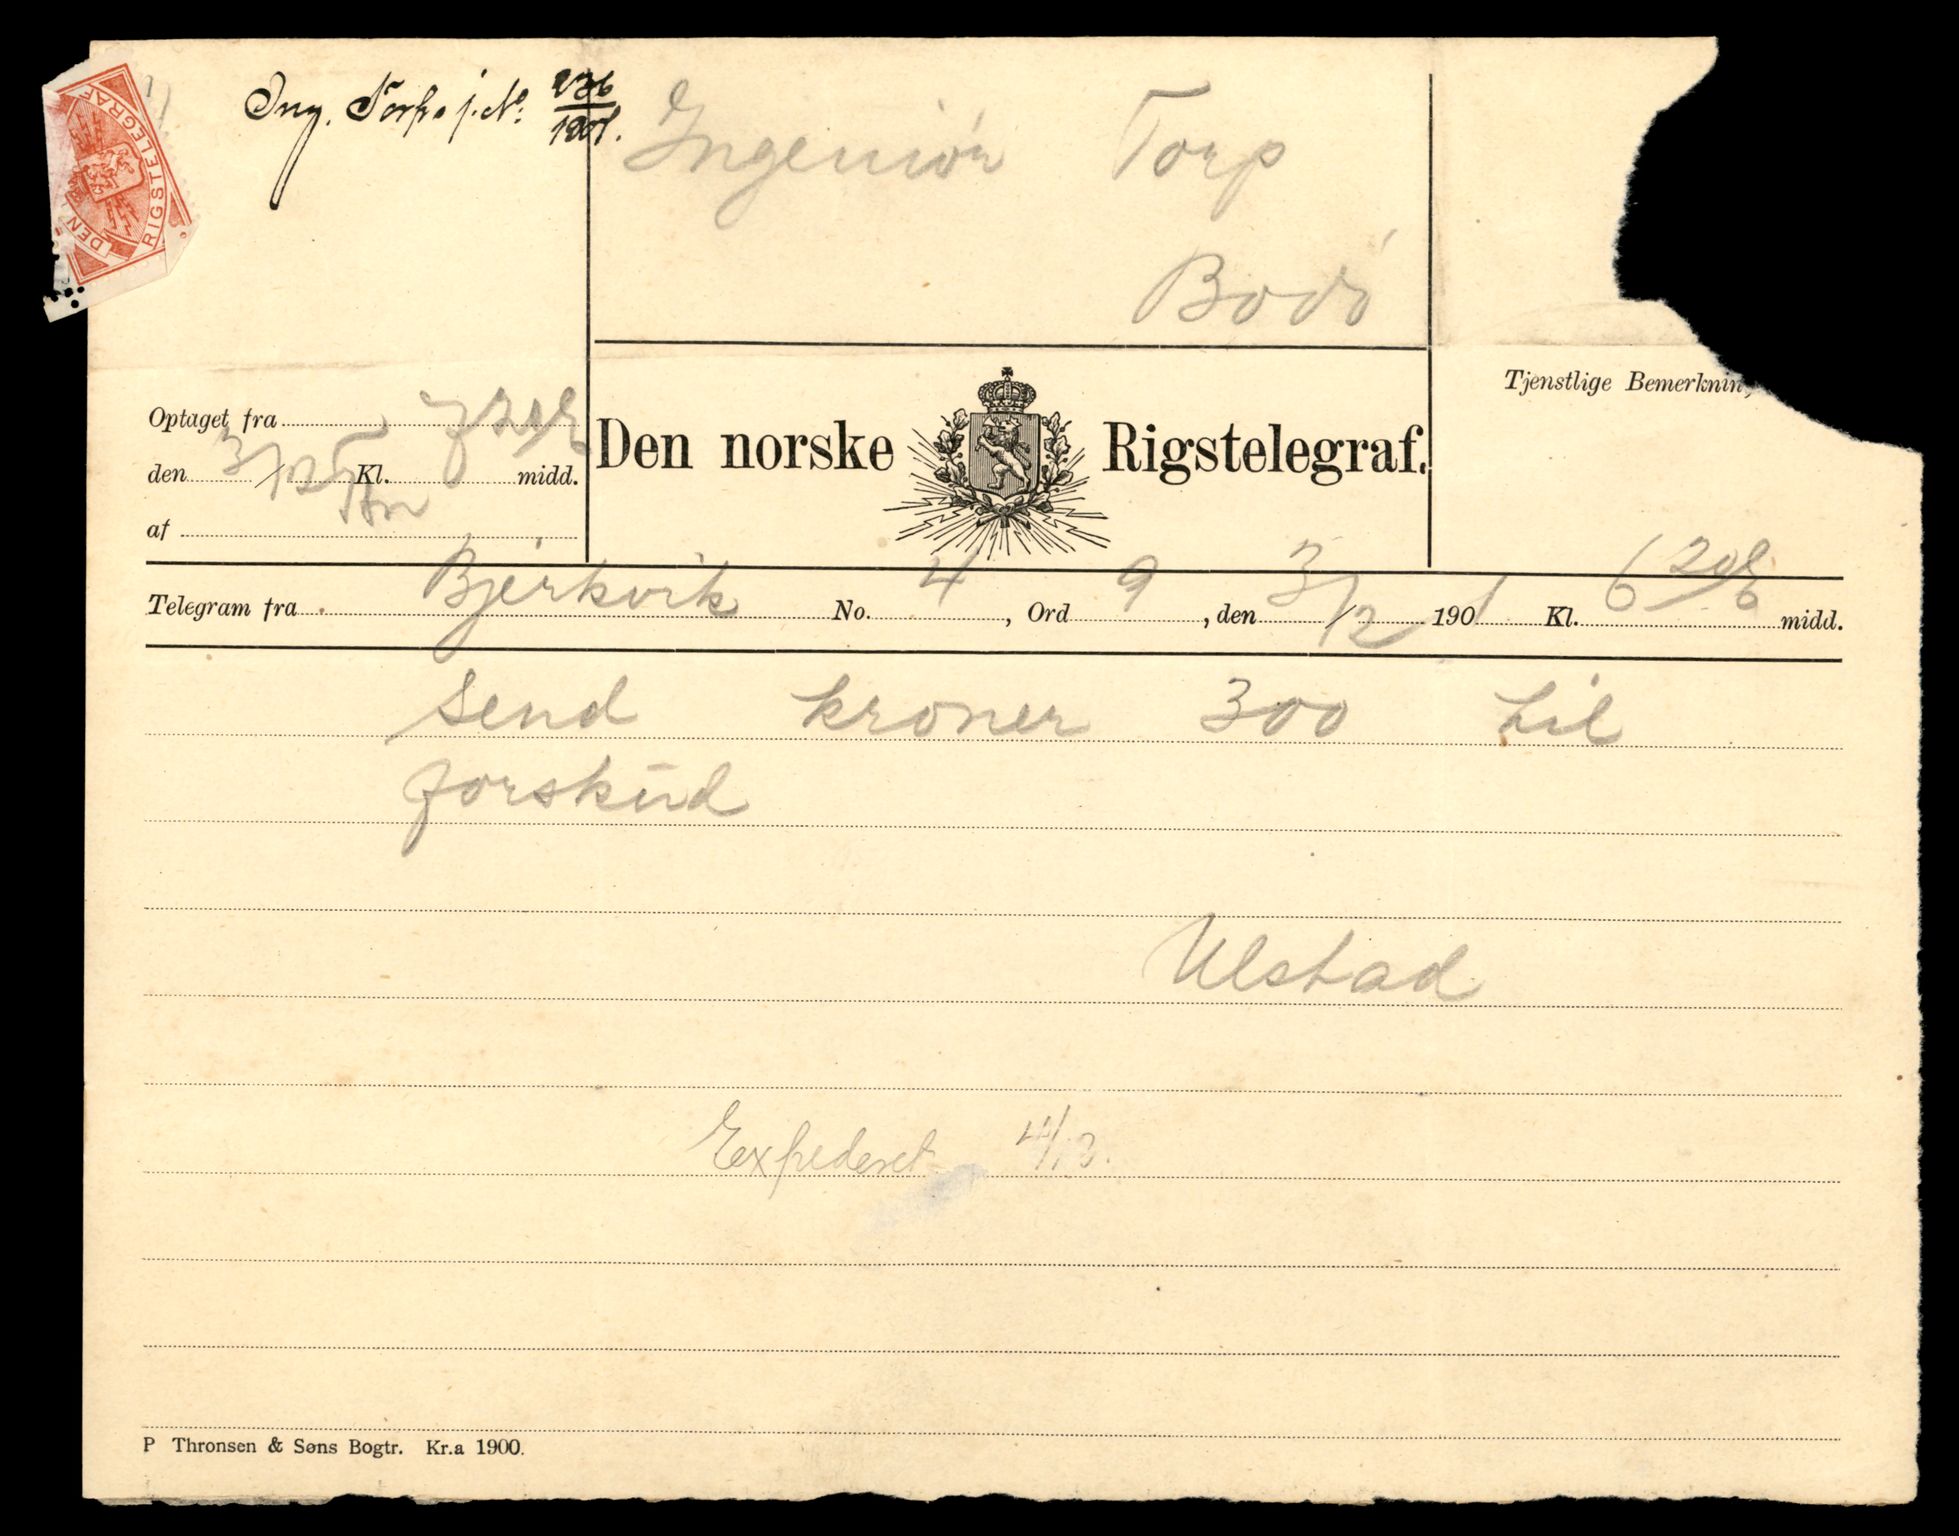 DEN RIGSTELEGRAF
Ing. Torps j. No. 236/1901.
Ingeniör Torp
Bodö
Optaget fra
den 3/12 Kl. 7 20 E midd.
af
Den norske Rigstelegraf.
Tjenstlige Bemerknin
Telegram fra Bjerkvik No. 4, Ord 9, den 3/12 1901 Kl. 6 20 E midd.
Send kroner 300 til
forskūd
Ulstad
Expederet 4/12.
P Thronsen & Søns Bogtr. Kr.a 1900.